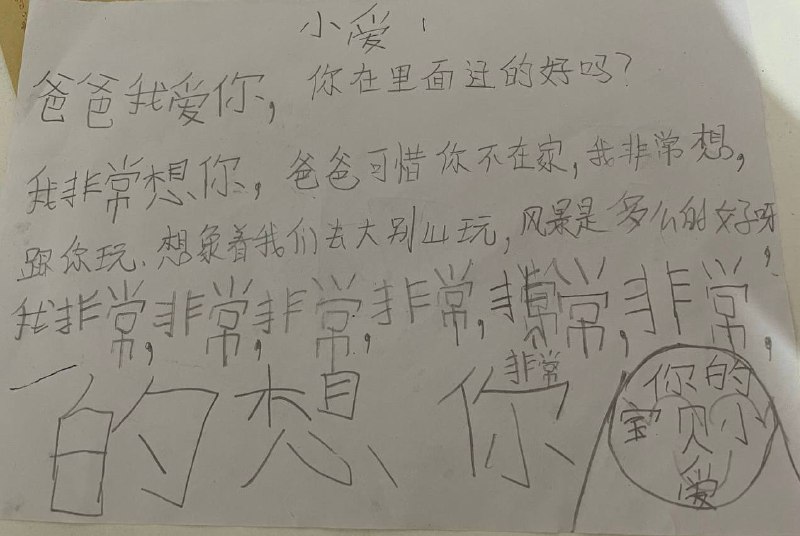 小爱！
爸爸我爱你，你在里面过的好吗？
我非常想你，爸爸可惜你不在家，我非常想，
跟你玩、想象着我们去大别山玩，风景是多么的好呀，
我非常，非常，非常，非常，非常，非常，
非常
的想你
你的
宝贝小
爱